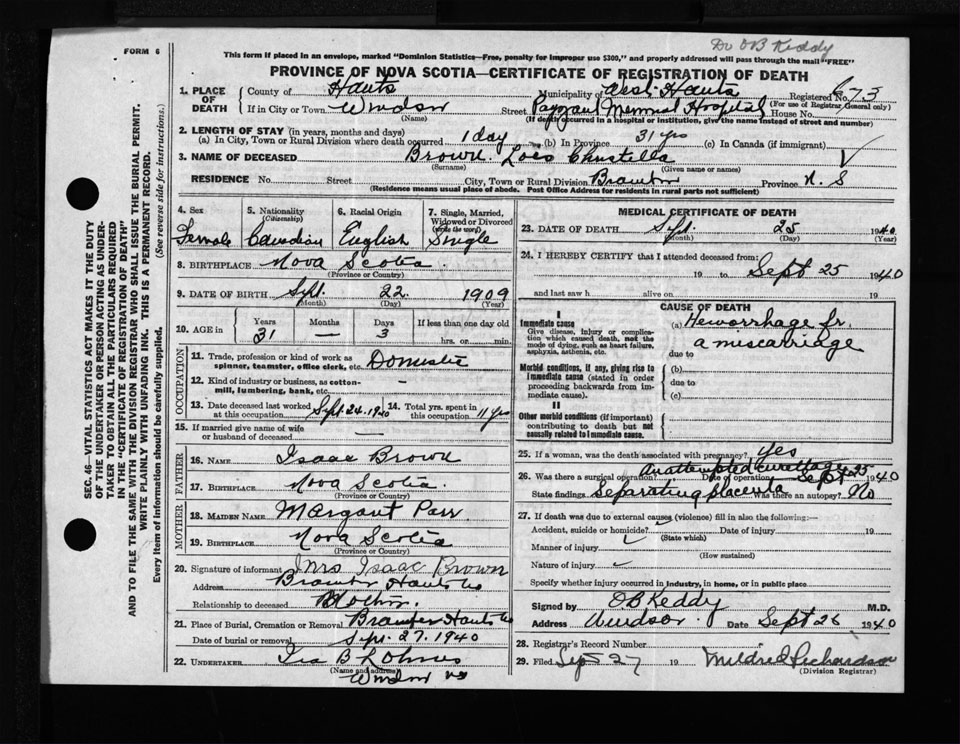 Dr OB Keddy
FORM 6
This form if placed in an envelope, marked "Dominion Statistics—Free, penalty for improper use $300," and properly addressed will pass through the mail "FREE"
PROVINCE OF NOVA SCOTIA—CERTIFICATE OF REGISTRATION OF DEATH
1. PLACE OF DEATH
County of Hants Municipality of West Hants Registered No. 673
(For use of Registrar General only)
If in City or Town Windsor Street Payzant Memorial Hospital House No.
(Name) (If death occurred in a hospital or institution, give the name instead of street and number)
2. LENGTH OF STAY (in years, months and days)
(a) In City, Town or Rural Division where death occurred 1 day (b) In Province 31 yrs (c) In Canada (if immigrant)
3. NAME OF DECEASED Brown Lois Christella
(Surname) (Given name or names)
RESIDENCE No. Street City, Town or Rural Division Province N. S
(Residence means usual place of abode. Post Office Address for residents in rural parts not sufficient)
SEC. 46—VITAL STATISTICS ACT MAKES IT THE DUTY
OF THE UNDERTAKER OR PERSON ACTING AS UNDER-
TAKER TO OBTAIN ALL THE PARTICULARS REQUIRED
IN THE "CERTIFICATE OF REGISTRATION OF DEATH"
AND TO FILE THE SAME WITH THE DIVISION REGISTRAR WHO SHALL ISSUE THE BURIAL PERMIT.
WRITE PLAINLY WITH UNFADING INK. THIS IS A PERMANENT RECORD.
Every item of information should be carefully supplied. (See reverse side for instructions.)
4. Sex Female
5. Nationality (Citizenship) Canadian
6. Racial Origin English
7. Single, Married, Widowed or Divorced (write the word) Single
8. BIRTHPLACE Nova Scotia
(Province or Country)
9. DATE OF BIRTH Sept. 22 1909
(Month) (Day) (Year)
10. AGE in Years Months Days If less than one day old
31 — 3 hrs. or min.
OCCUPATION
11. Trade, profession or kind of work as spinner, teamster, office clerk, etc. Domestic
12. Kind of industry or business, as cotton-mill, lumbering, bank, etc. —
13. Date deceased last worked at this occupation Sept 24, 1940 14. Total yrs. spent in this occupation 11 yrs
15. If married give name of wife or husband of deceased —
FATHER
16. NAME Isaac Brown
17. BIRTHPLACE Nova Scotia
(Province or Country)
MOTHER
18. MAIDEN NAME Margaret Parr
19. BIRTHPLACE Nova Scotia
(Province or Country)
20. Signature of informant Mrs Isaac Brown
Address Hants Co
Relationship to deceased Mother
21. Place of Burial, Cremation or Removal Hants Co
Date of burial or removal Sept. 27. 1940
22. UNDERTAKER Ira B Lohnes
(Name and address)
Windsor NS
MEDICAL CERTIFICATE OF DEATH
23. DATE OF DEATH Sept. 25 1940
(Month) (Day) (Year)
24. I HEREBY CERTIFY that I attended deceased from:
19 to Sept 25 1940
and last saw h alive on 19
CAUSE OF DEATH
I
Immediate cause
Give disease, injury or complication which caused death, not the mode of dying, such as heart failure, asphyxia, asthenia, etc.
(a) Hemorrhage fr
a miscarriage
due to
Morbid conditions, if any, giving rise to immediate cause (stated in order proceeding backwards from immediate cause).
(b)
due to
(c)
II
Other morbid conditions (if important) contributing to death but not causally related to immediate cause.
25. If a woman, was the death associated with pregnancy? Yes
26. Was there a surgical operation? An attempted curettage Date of operation Sept 25 1940
State findings Separating placenta Was there an autopsy? No
27. If death was due to external causes (violence) fill in also the following:—
Accident, suicide or homicide? Date of injury 19
(State which)
Manner of injury
(How sustained)
Nature of injury
Specify whether injury occurred in industry, in home, or in public place
Signed by OB Keddy M.D.
Address Windsor Date Sept 26 1940
28. Registrar's Record Number
29. Filed Sept 27 19 Mildred Richardson
(Division Registrar)